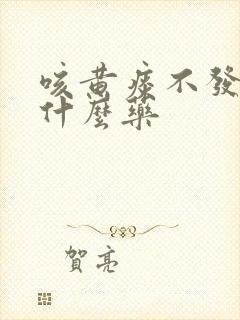 咳黃痰不發
什麼藥
賀亮